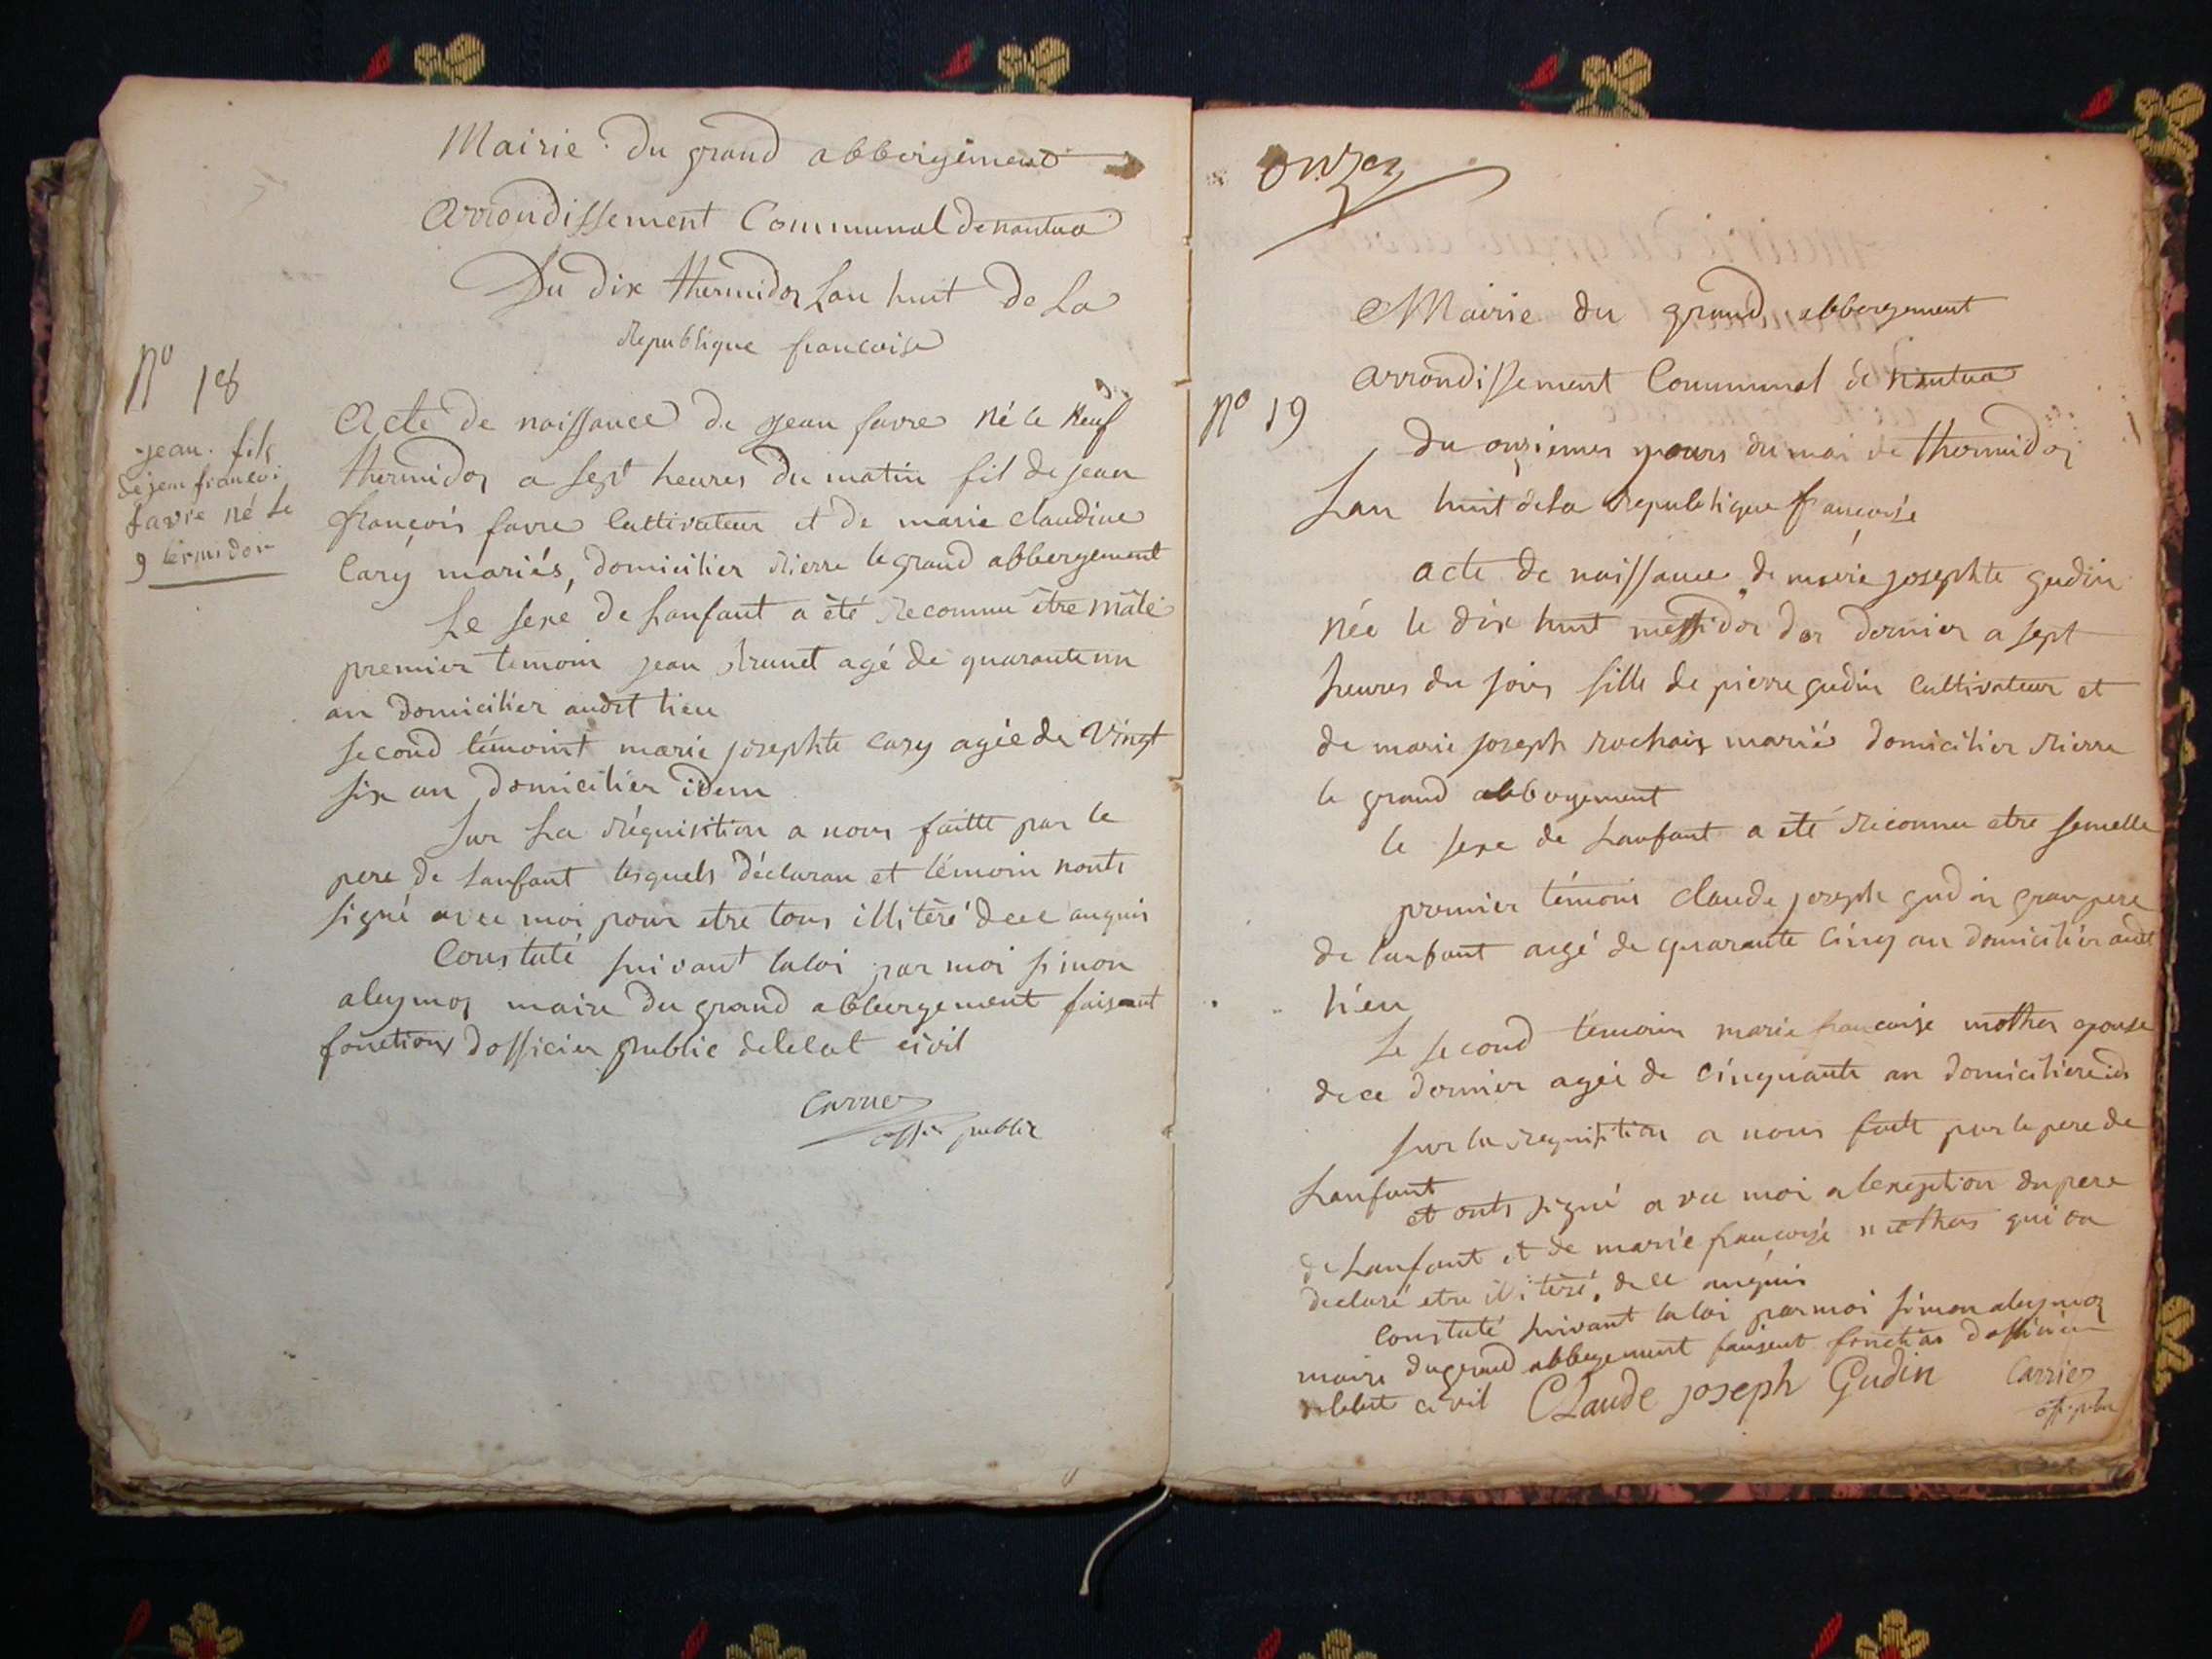 Mairie du grand abbergement
Arrondissement Communal de nantua
Du dix thermidor Lan huit de La
Republique francoise
No 18
jean. fils
de jean francoi
favre né le
9 termidor
Acte de naissance de jean favre né le neuf
thermidor a sept heures du matin fil de jean
françois favre Cultivateur et de marie claudine
Cary mariés, domicilier rierre le grand abbergement
Le sexe de Lanfant a été reconnu être mâle
premier temoin jean brunet agé de quarante un
an domicilier audit lieu
second témoint marie josephte Cary agée de Vingt
six an domicilier idem
Sur La réquisition a nous faitte par le
pere de Lanfant lesquels déclaran et témoin nonts
signé avec moi pour etre tous illitéré de ce anquis
Constaté suivant la loi par moi simon
maire du grand abbergement faisant
fonction dofficier public de letat civil
Carrier
offier public
onze
Mairie du grand abbergement
arrondissement Communal de nantua
No 19
Du onzieme jours du moi de thermidor
Lan huit de La Republique francoise
acte de naissance de marie josephte gudin
Née le dix huit messidor dernier a sept
heures du soir fille de pierre gudin Cultivateur et
de marie joseph rochaix mariés domicilier rierre
le grand abbergement
le sexe de Lanfant a eté reconnu etre femelle
premier témoin claude joseph gudin granpere
de lanfant agé de quarante Cinq an domicilier audt
lieu
Le second témoin marie francoise epouse
de ce dernier agée de Cinquante an domiciliere id
Sur la requisition a nous faite par le pere de
Lanfant
et onts signé avec moi a lexeption du pere
de Lanfant et de marie françoise qui on
declaré etre illiteré, de ce anquis
Constaté suivant la loi par moi simon
maire du grand abbergement faisent fonction dofficier
de letat civil Claude joseph Gudin Carrier